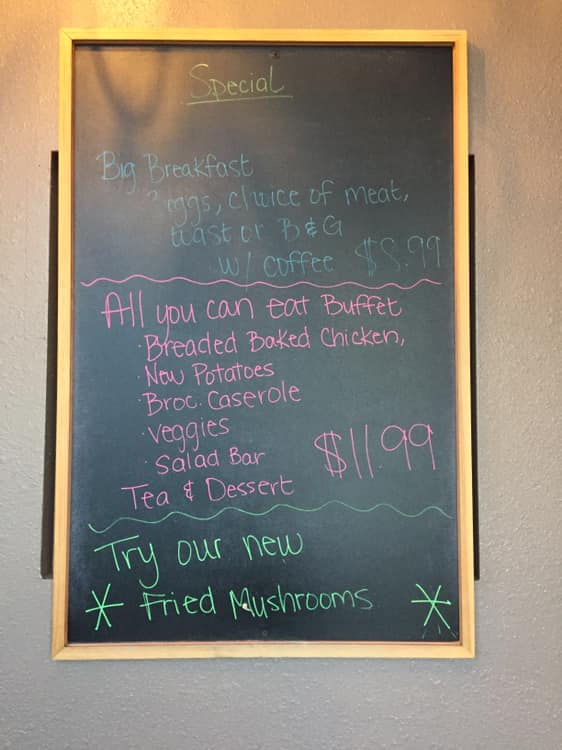 Special
Big Breakfast
eggs, choice of meat,
toast or B&G
w/ coffee
All you can eat Buffet
· Breaded Baked Chicken,
· New Potatoes
· Broc. Caserole
· Veggies
· Salad Bar $11.99
Tea & Dessert
Try our new
* Fried Mushrooms *